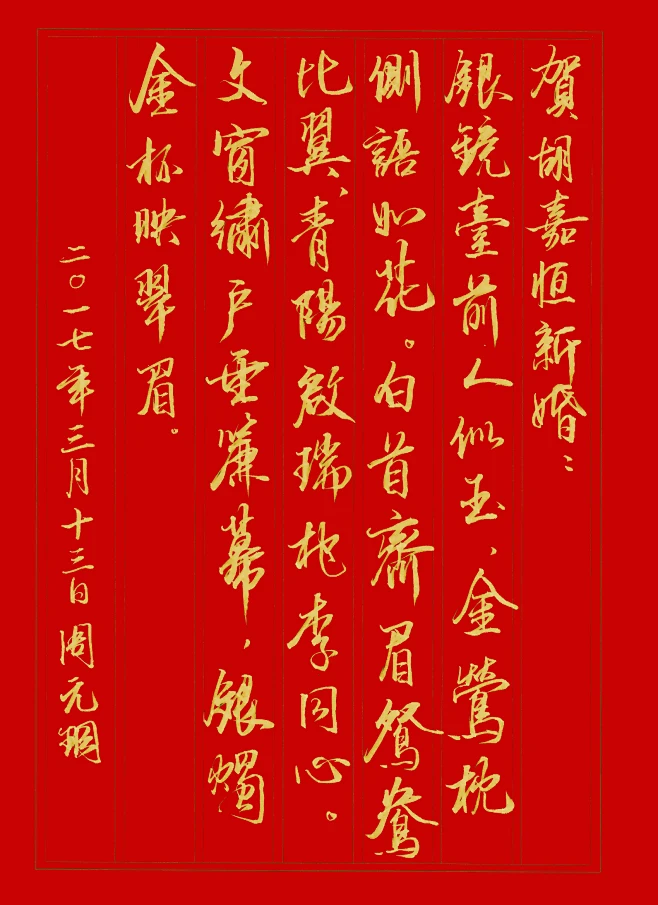 賀胡嘉恒新婚：
銀鏡臺前人似玉、金鶯枕
側語如花。白首齊眉鴛鴦
比翼、青陽啟瑞桃李同心。
文窗繡戶垂簾幕，銀燭
金杯映翠眉。
二〇一七年三月十三日周元